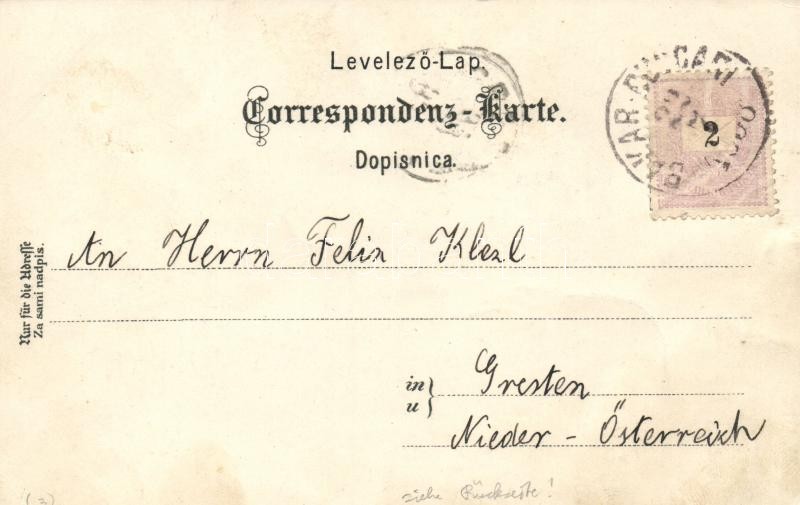 Levelező-Lap.
Correspondenz-Karte.
Dopisnica.
2
Nur für die Adresse
Za sami nadpis.
An Herrn Felix Klezl
in
u
Gresten
Nieder-Österreich
(3)
siehe Rückseite!